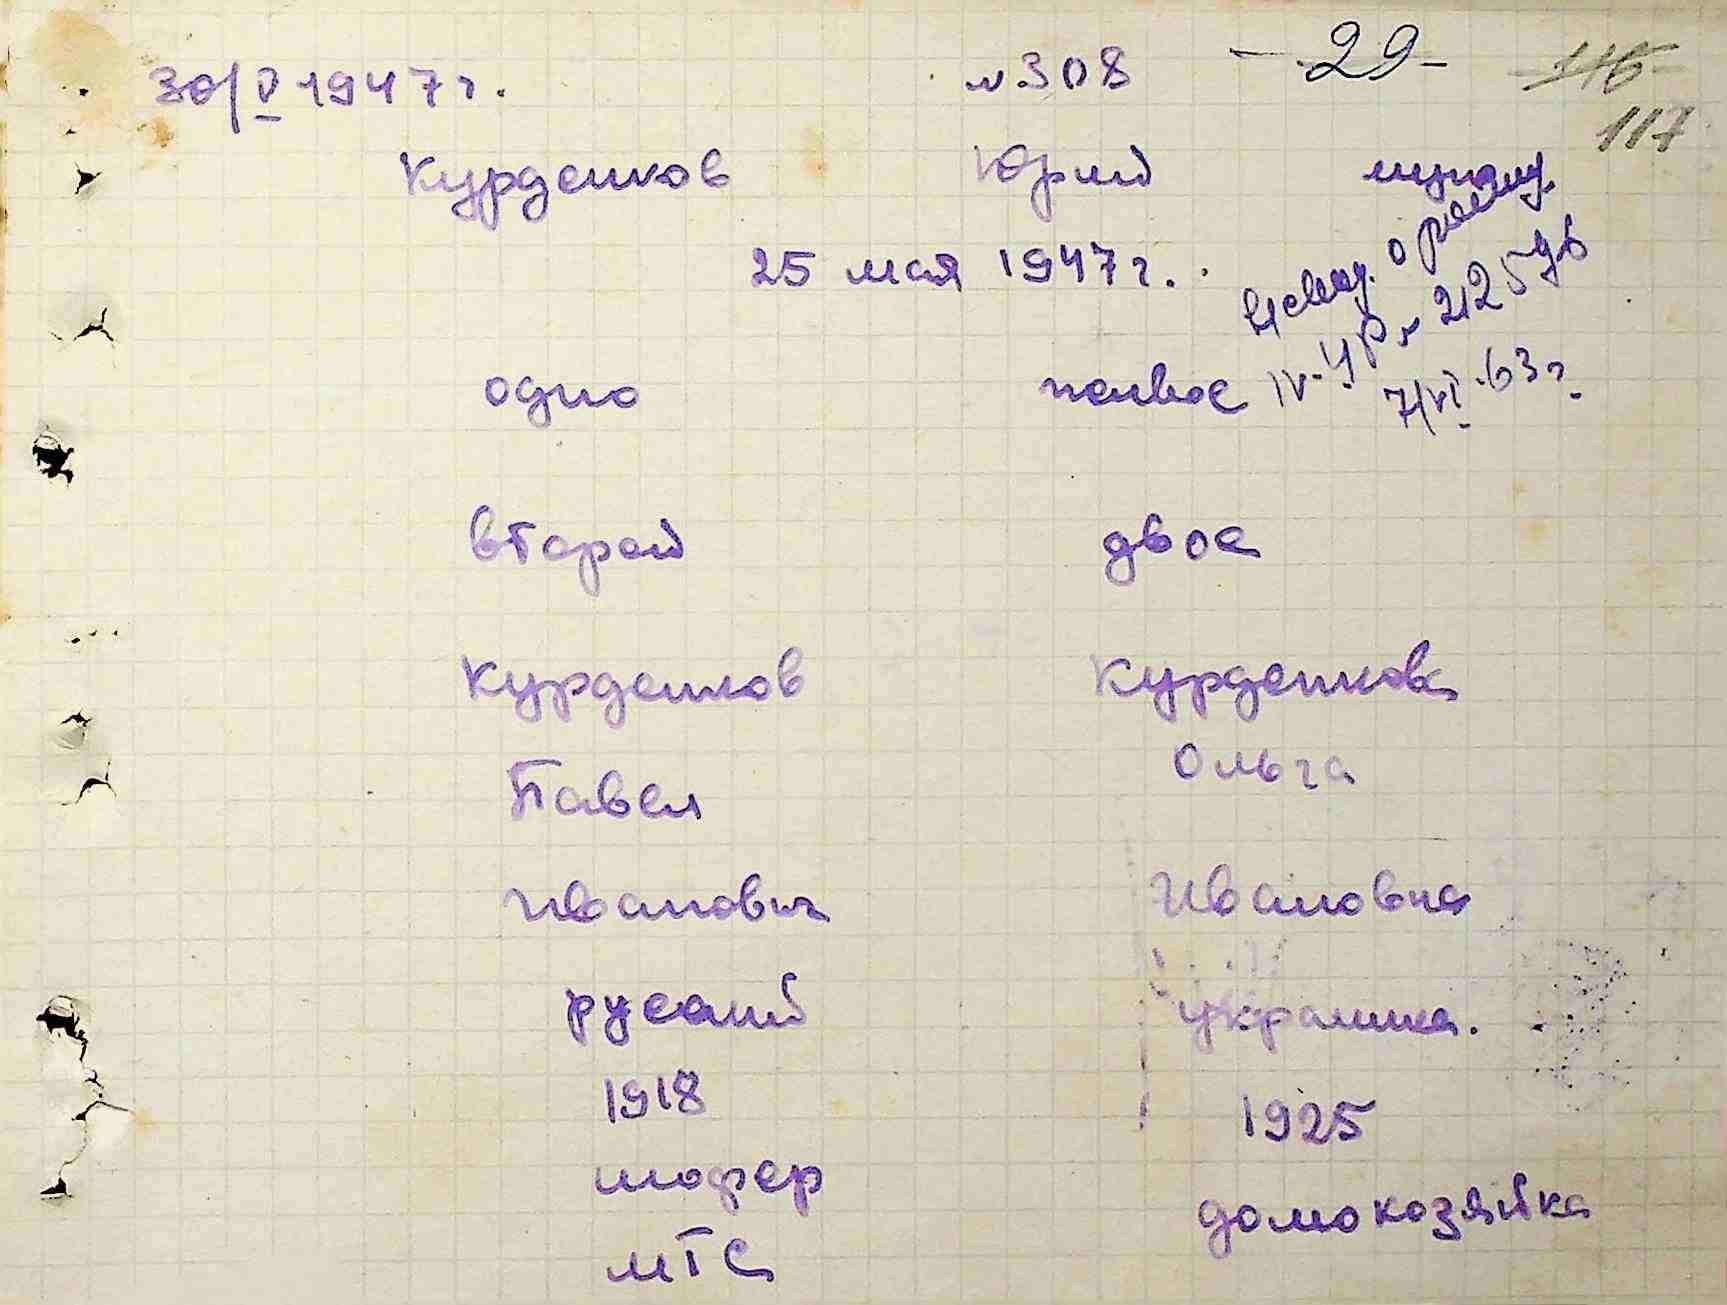 30/V 1947 г. № 308 -29- 116
117
Курденков Юрий мужск.
25 мая 1947 г.
Выслид. о рожд.
IV-УР № 212598
7/VI-63 г.
одно живое
второй двое
Курденков Курденкова
Павел Ольга
Иванович Ивановна
русский украинка.
1918 1925
шофер домохозяйка
МТС